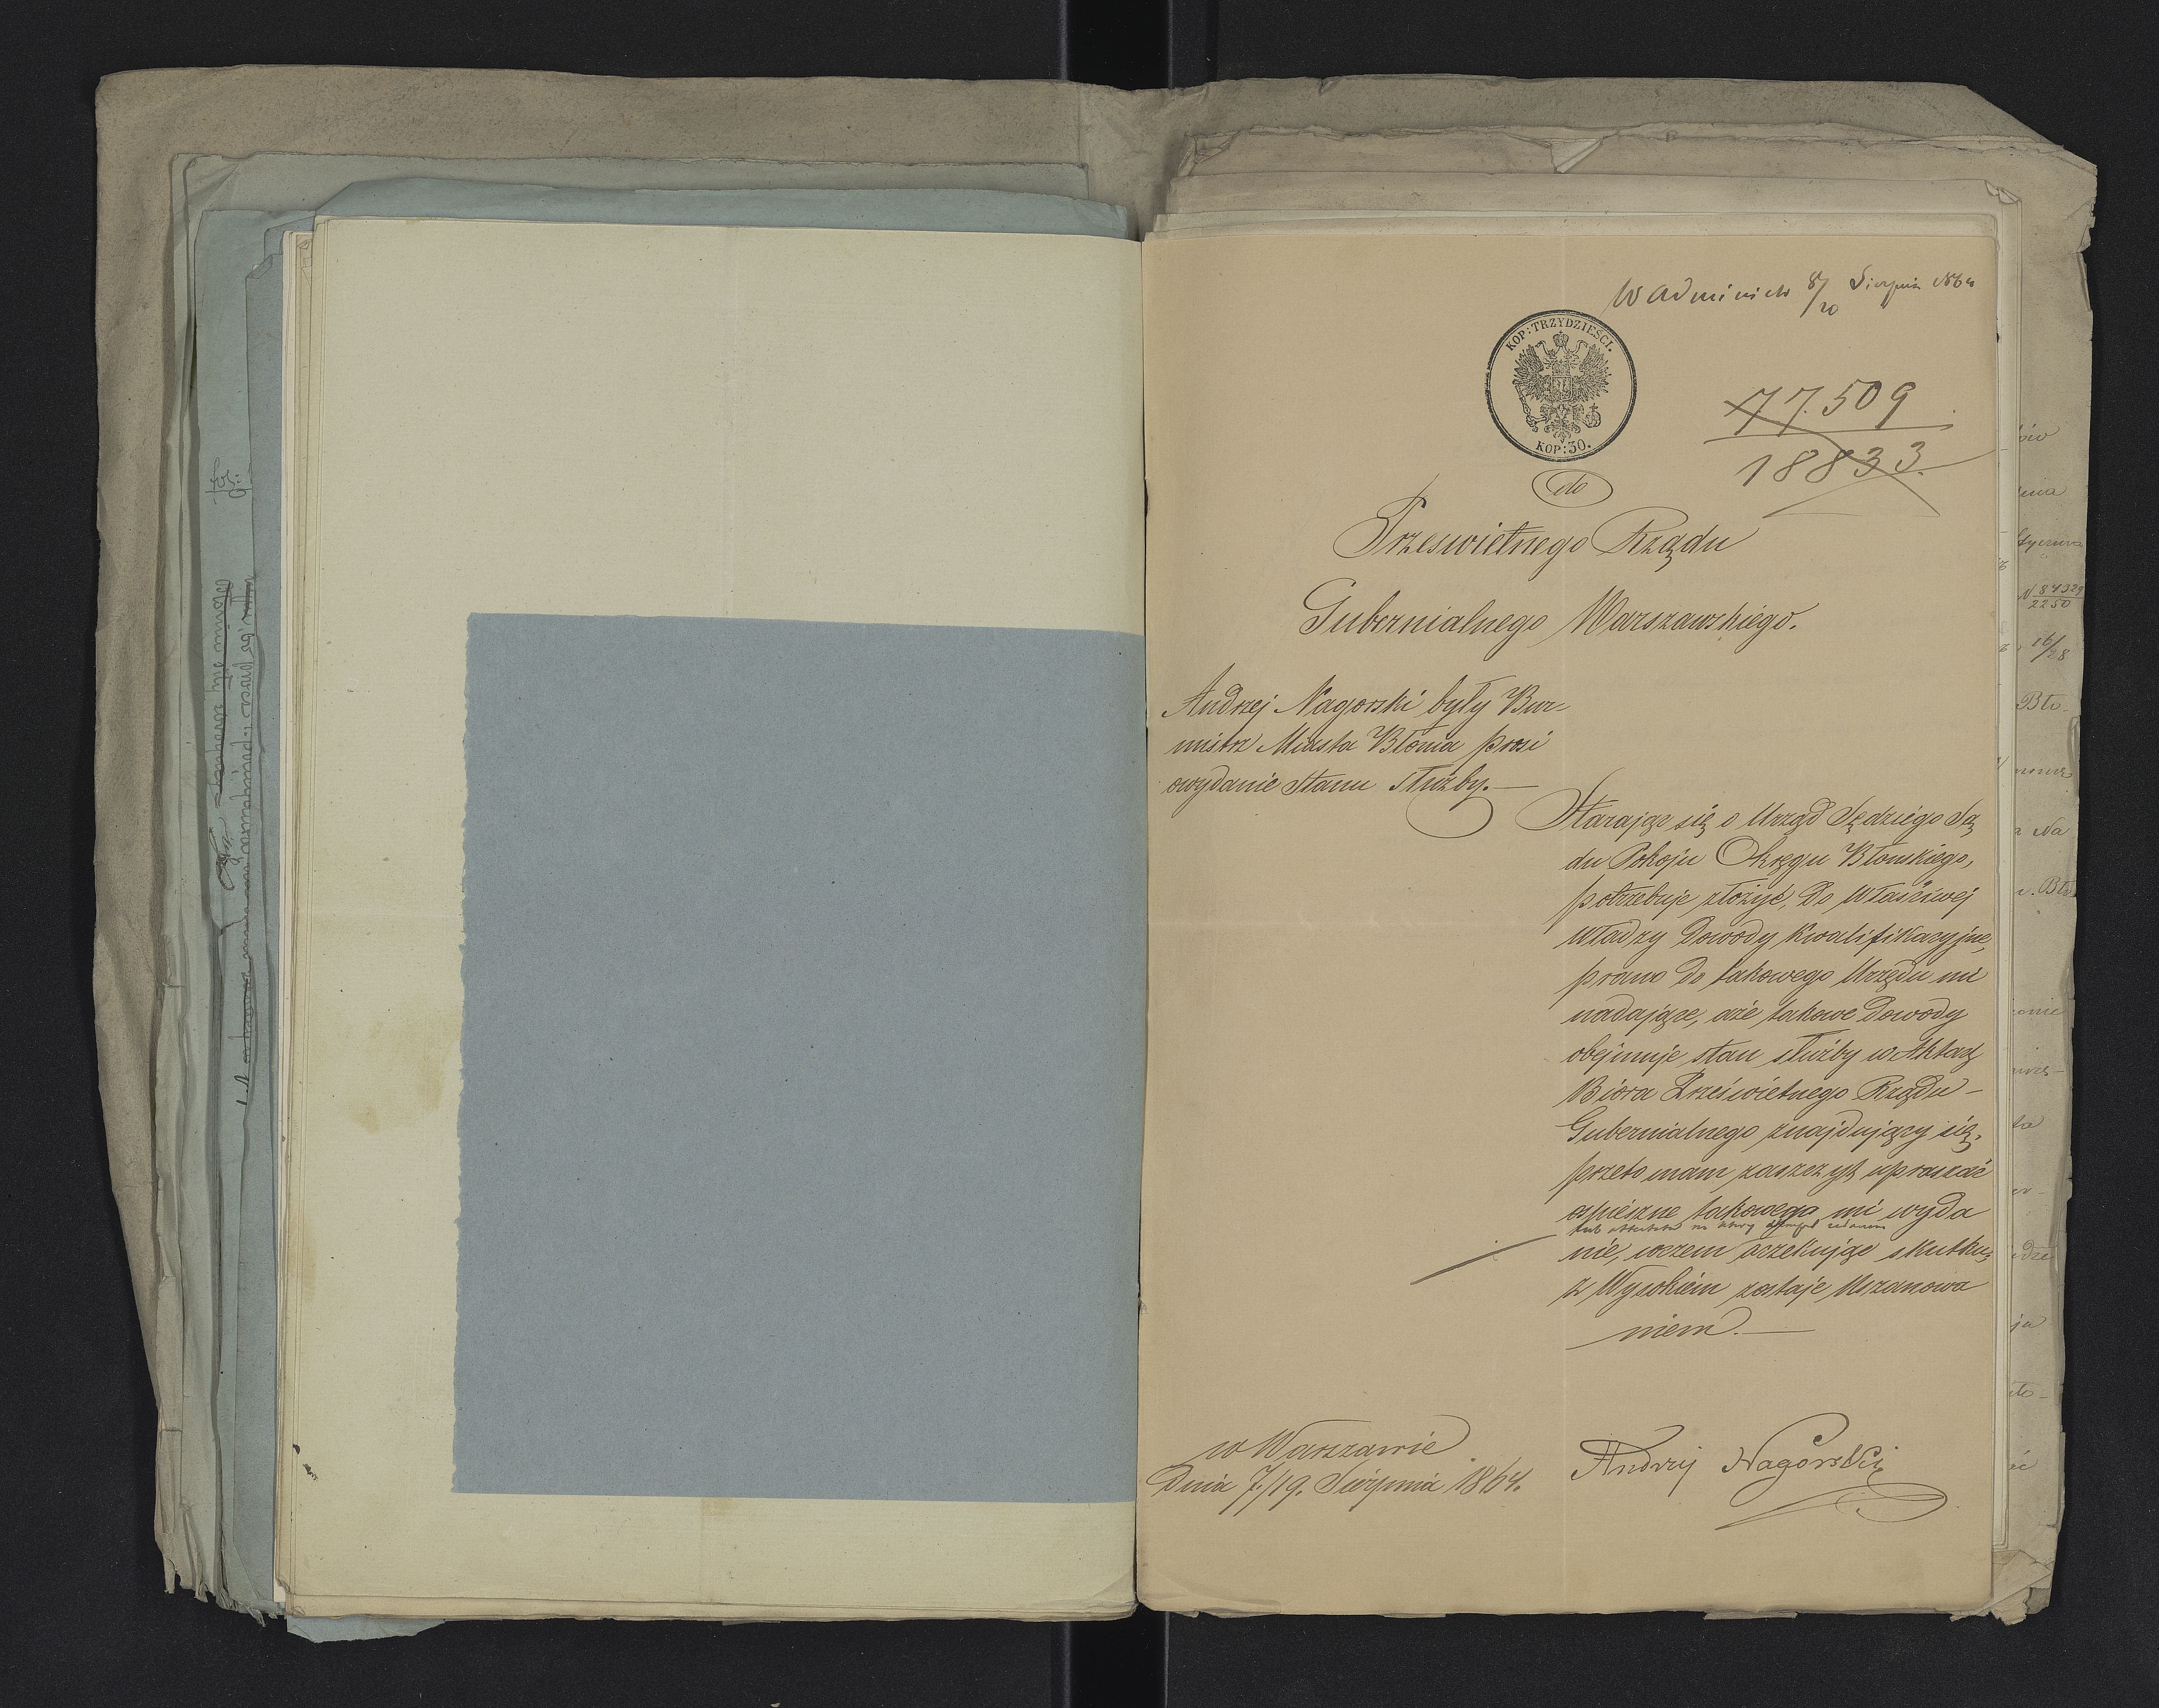 W Adminisch 8/20 Sierpnia 1864
KOP: TRZYDZIEŚCI.
KOP: 30.
77.509
18833.
do
Prześwietnego Rządu
Gubernialnego Warszawskiego.
Andrzej Nagorski były Bur-
mistrz Miasta Błonia prosi
owydanie Stanu Służby.—
Starając się o Urząd Sędziego Są
du Pokoju Okręgu Błonskiego,
potrzebuje złożyć, do Właściwej
Władzy Dowody Kwalifikacyjne,
prawo do takowego Urzędu mi
nadające, aże takowe Dowody
obejmuje stan służby w Aktach
Biora Prześwietnego Rządu—
Gubernialnego znajdujący się,
przeto mam zaszczyt upraszać
ospieszne takowego mi wyda
nie, wczem oczekując skutku,
z Wysokiem zostaje Uszanowa
niem.—
w Warszawie
Dnia 7/19. Sierpnia 1864.
Andrzej Nagórski